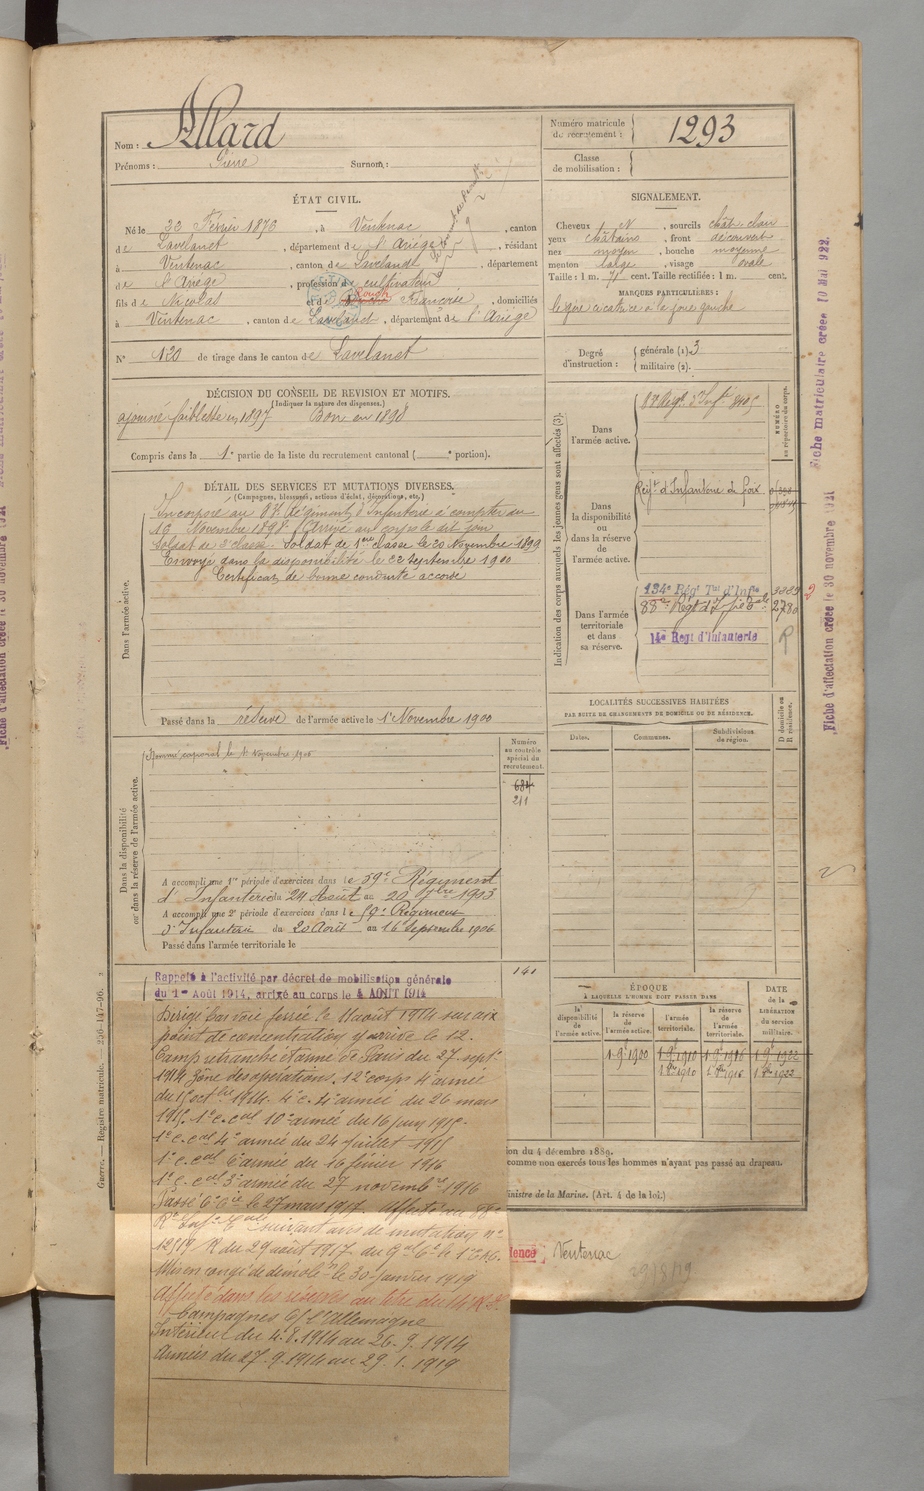 Nom : Allard
Prénoms : Pierre Surnom :
Numéro matricule de recrutement : 1293
Classe de mobilisation :
ÉTAT CIVIL.
Né le Février 187 , à Ventenac , canton
de Lavelanet , département de l'Ariège , résidant
à Ventenac , canton de Lavelanet , département
de l'Ariège , profession de cultivateur
fils de Nicolas et de Rouch Françoise , domiciliés
à Ventenac , canton de Lavelanet , département de l'Ariège
N° 120 de tirage dans le canton de Lavelanet
SIGNALEMENT.
Cheveux N , sourcils chât. clair
yeux châtains , front découvert
nez moyen , bouche moyenne
menton large , visage ovale
Taille : 1 m. 71 cent. Taille rectifiée : 1 m. cent.
MARQUES PARTICULIÈRES :
légère cicatrice à la joue gauche
Degré d'instruction : générale (1) 3
militaire (2).
DÉCISION DU CONSEIL DE REVISION ET MOTIFS.
(Indiquer la nature des dispenses.)
ajourné faiblesse en 1897 Bon en 1898
Compris dans la 1e partie de la liste du recrutement cantonal ( e portion).
DÉTAIL DES SERVICES ET MUTATIONS DIVERSES.
(Campagnes, blessures, actions d'éclat, décorations, etc.)
Dans l'armée active.
Incorporé au Régiment d'Infanterie à compter du
16 Novembre 1898. Arrivé au corps le dit jour
Soldat de 2e classe. Soldat de 1ère classe le 20 Novembre 1899
Envoyé dans la disponibilité le 22 Septembre 1900
Certificat de bonne conduite accordé
Passé dans la réserve de l'armée active le 1er Novembre 1900
Indication des corps auxquels les jeunes gens sont affectés (3).
NUMÉRO au répertoire du corps.
Dans l'armée active.
Dans la disponibilité ou dans la réserve de l'armée active.
Régt d'Infanterie de Foix
Dans l'armée territoriale et dans sa réserve.
134e Rég Tal d'Infie
88e Régt d'Infie Tale 2780
14e Regt d'Infanterie
LOCALITÉS SUCCESSIVES HABITÉES
PAR SUITE DE CHANGEMENTS DE DOMICILE OU DE RÉSIDENCE.
Dates. Communes. Subdivisions de région. D domicile ou R résidence.
Dans la disponibilité ou dans la réserve de l'armée active.
Numéro au contrôle spécial du recrutement.
684
211
Nommé caporal le 1er Novembre 1900
A accompli une 1re période d'exercices dans le 59e Régiment
d'Infanterie du 24 Août au 20 7bre 1903
A accompli une 2e période d'exercices dans le 59e Régiment
d'Infanterie du 20 Août au 16 Septembre 1906
Passé dans l'armée territoriale le
141
Rappelé à l'activité par décret de mobilisation générale
du 1er Août 1914, arrivé au corps le 4 AOUT 1914
Dirigé par voie ferrée le 11 août 1914 sur un
point de concentration y arrive le 12.
Camp retranché et armée de Paris du 27 septe
1914 zone des opérations. 12e corps 4e armée
du 15 octbre 1914. 4e c. 4e armée du 26 mars
1915. 1er c. cal 10e armée du 16 juin 1915.
1er c. cal 4e armée du 24 juillet 1915
1er c. cal 6e armée du 16 février 1916
1er c. cal 3e armée du 27 novembre 1916
Passé 6e Cie le 27 mars 1917. Affecté au 88e
Rt Infie Tale suivant avis de mutation n°
R du 29 août 1917 du
Mis en congé de démoban le 30 janvier 1919
Affecté dans les réserves au titre du 14e R.I.
Campagnes c/ l'Allemagne
Intérieur du 4.8.1914 au 26.9.1914
Armées du 27.9.1914 au 29.1.1919
ÉPOQUE
À LAQUELLE L'HOMME DOIT PASSER DANS
la disponibilité de l'armée active. la réserve de l'armée active. l'armée territoriale. la réserve de l'armée territoriale. DATE de la LIBÉRATION du service militaire.
1 9bre 1900 1 9bre 1910 1 9bre 1916 1 9bre 1922
1 8bre 1910 1 8bre 1916 1 8bre 1922
ion du 4 décembre 1889.
comme non exercés tous les hommes n'ayant pas passé au drapeau.
inistre de la Marine. (Art. 4 de la loi.)
dence Ventenac
29/8/19
Guerre. — Registre matricule. — 256-147-96.
Fiche matriculaire créée 10 Mai 1922.
Fiche d'affectation créée le 30 novembre 1921